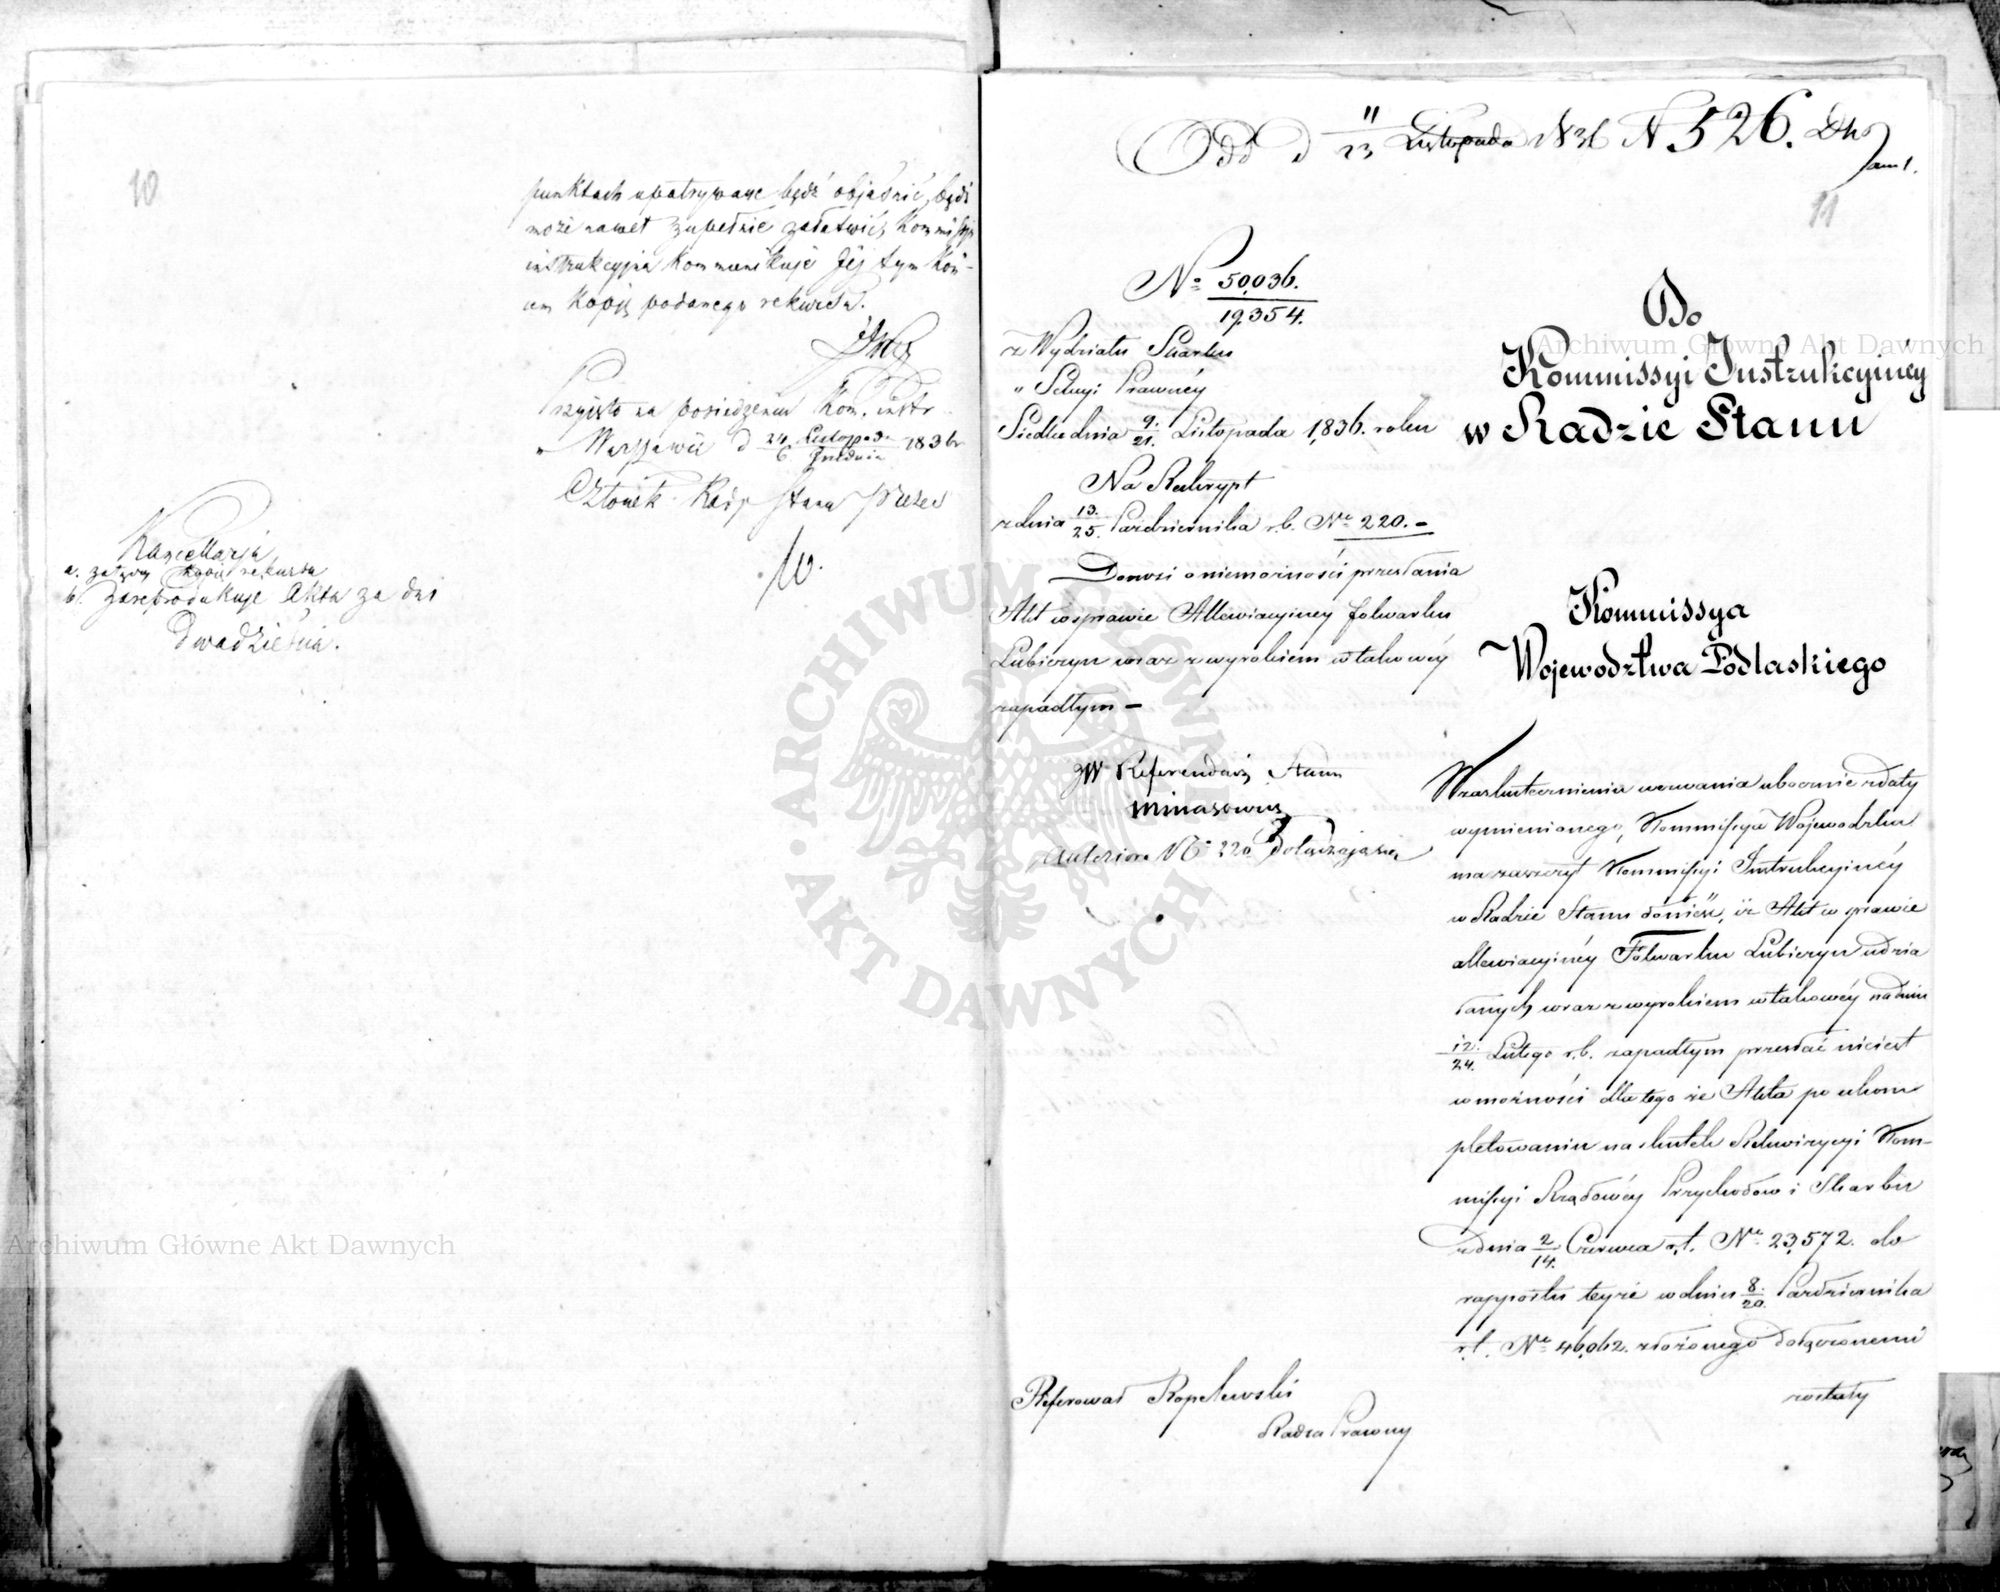 10
punktach upatrywane bądź objaśnić, bądź
może nawet zupełnie załatwić, Kommissya
instrukcyjna kommunikuje Jéj tym koń-
cem kopiję podanego rekursu.
Przyjęto na posiedzeniu Kom. instr.
w Warszawie d 24/6 Listopada/Grudnia 1836 r
Członek Rady Stanu Prezes
Kancellarja
a. załączy kopię rekursu
b. zareprodukuje Akta za dni
dwadzieścia.
Odd d 11/23 Listopada 1836 N 526.
11
Nº 50,036.
19,354.
z Wydziału Skarbu
" Sekcyi Prawnéy
Siedlce dnia 9./21. Listopada 1,836. roku
Na Reskrypt
z dnia 13./25. Pazdziernika r.b. Nº 220.-
Donosi o niemożności przesłania
Akt w sprawie Allewiacyjney folwarku
Lubiczyn wraz z wyrokiem w takowéy
zapadłym -
JW Referendarz Stanu
Minasowicz
Do
Kommissyi Instrukcyinéy
w Radzie Stanu
Kommissya
Województwa Podlaskiego
W zaskutecznieniu wezwania ubocznie z daty
wymienionego, Kommissya Wojewodzka
ma zaszczyt Kommissyi Instrukcyinéy
w Radzie Stanu donieść, iż Akt w sprawie
allewiacyinéy Folwarku Lubiczyn udzia
łanych wraz z wyrokiem w takowéy na dniu
12./24. Lutego r.b. zapadłym przesłać nie iest
w możności dla tego że Akta po ukom
pletowaniu na skutek Rekwizycyi Kom-
missyi Rządowéy Przychodow i Skarbu
z dnia 2/14. Czerwca r.t. Nº 23,572. do
rapportu teyże w dniu 8./20. Pazdziernika
r.t. Nº 46,062. złożonego dołączonemi
zostały
Referował Kopelewski
Radca Prawny
ARCHIWUM GŁÓWNE AKT DAWNYCH
Archiwum Główne Akt Dawnych
Archiwum Główne Akt Dawnych